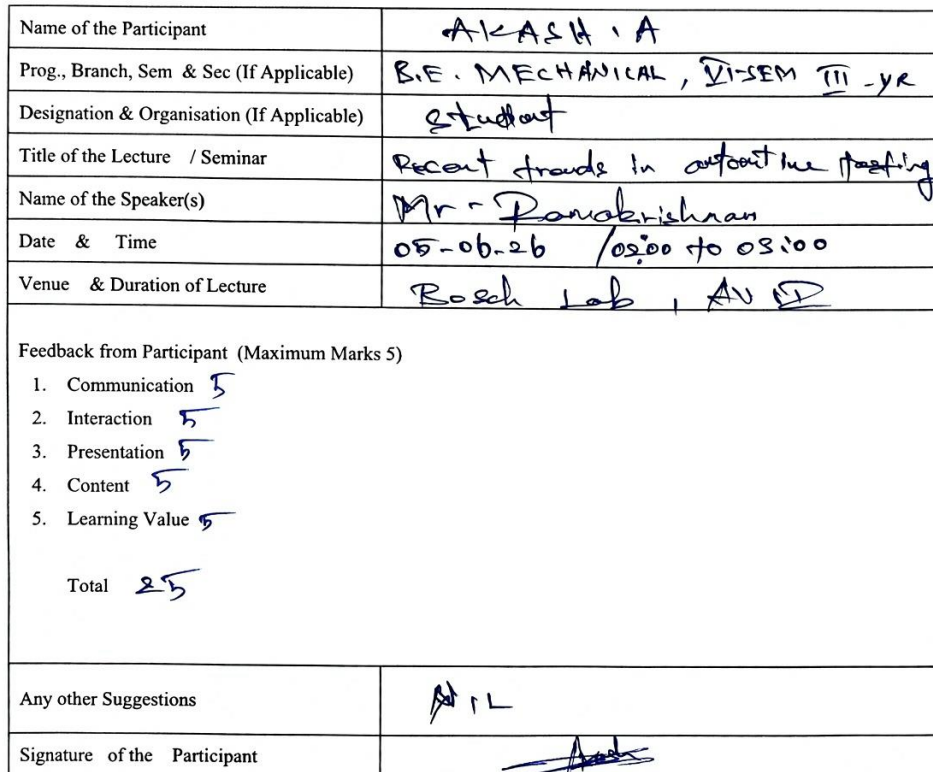 Name of the Participant AKASH . A
Prog., Branch, Sem & Sec (If Applicable) B.E. MECHANICAL, VI-SEM III - YR
Designation & Organisation (If Applicable) Student
Title of the Lecture / Seminar Recent trends in
Name of the Speaker(s) Mr - Ramakrishnan
Date & Time 05-06-26 /02:00 to 03:00
Venue & Duration of Lecture Bosch Lab,
Feedback from Participant (Maximum Marks 5)
1. Communication 5
2. Interaction 5
3. Presentation 5
4. Content 5
5. Learning Value 5
Total 25
Any other Suggestions NIL
Signature of the Participant